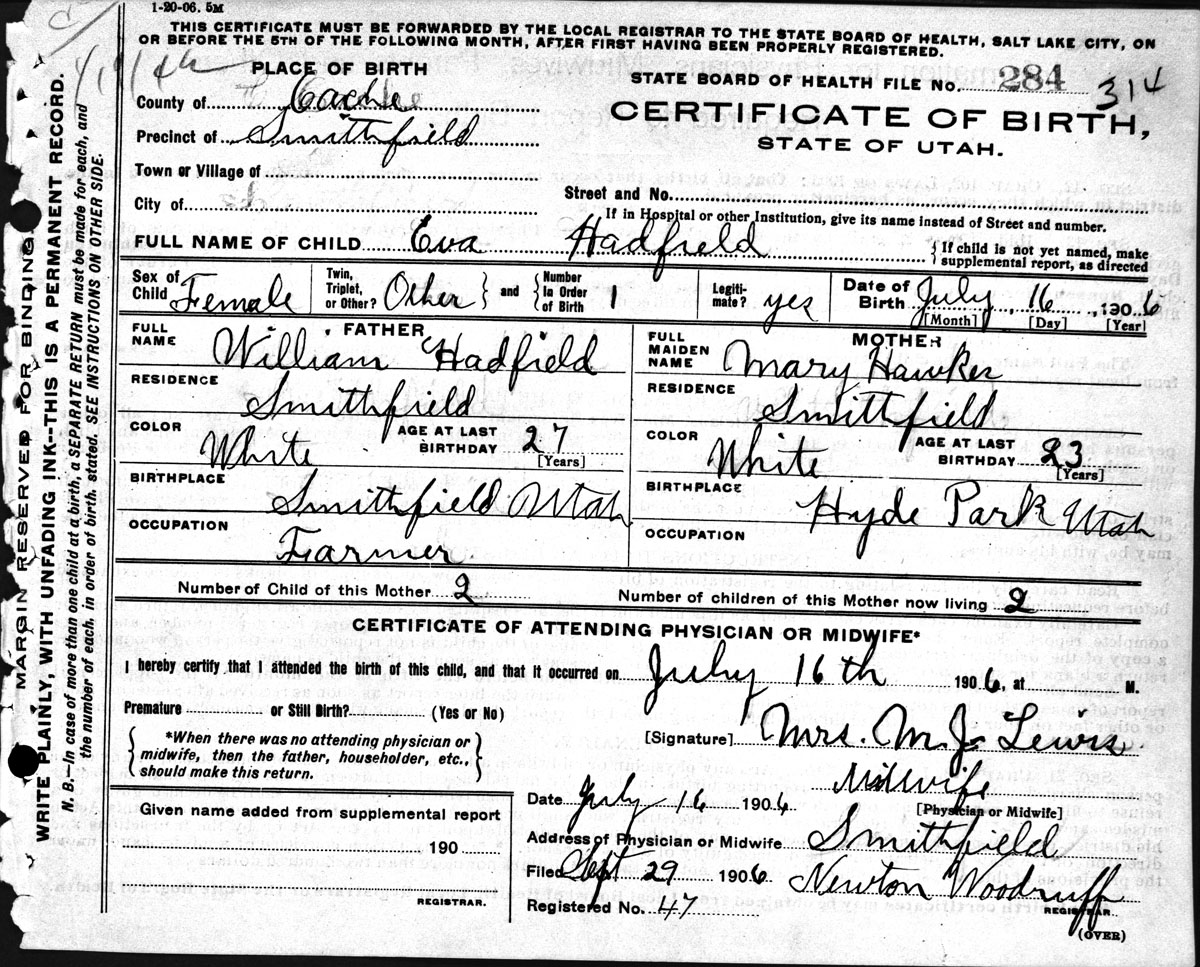 1-20-06. 5M
THIS CERTIFICATE MUST BE FORWARDED BY THE LOCAL REGISTRAR TO THE STATE BOARD OF HEALTH, SALT LAKE CITY, ON
OR BEFORE THE 5TH OF THE FOLLOWING MONTH, AFTER FIRST HAVING BEEN PROPERLY REGISTERED.
PLACE OF BIRTH
STATE BOARD OF HEALTH FILE NO. 284 314
County of Cache
CERTIFICATE OF BIRTH,
Precinct of Smithfield
STATE OF UTAH.
Town or Village of
Street and No.
City of
If in Hospital or other Institution, give its name instead of Street and number.
FULL NAME OF CHILD Eva Hadfield { If child is not yet named, make
supplemental report, as directed
Sex of Child Female Twin, Triplet, or Other? Other } and { Number In Order of Birth 1 Legiti- mate? yes Date of Birth July 16, 1906
[Month] [Day] [Year]
FATHER MOTHER
FULL NAME William Hadfield FULL MAIDEN NAME Mary Hawkes
RESIDENCE Smithfield RESIDENCE Smithfield
COLOR White AGE AT LAST BIRTHDAY 27 [Years] COLOR White AGE AT LAST BIRTHDAY 23 [Years]
BIRTHPLACE Smithfield Utah BIRTHPLACE Hyde Park Utah
OCCUPATION Farmer OCCUPATION
Number of Child of this Mother 2 Number of children of this Mother now living 2
CERTIFICATE OF ATTENDING PHYSICIAN OR MIDWIFE*
I hereby certify that I attended the birth of this child, and that it occurred on July 16th 1906, at M.
Premature or Still Birth? (Yes or No)
[Signature] Mrs. M. J. Lewis
{ *When there was no attending physician or
midwife, then the father, householder, etc.,
should make this return. }
Midwife
Date July 16 1906 [Physician or Midwife]
Given name added from supplemental report
Address of Physician or Midwife Smithfield
190
Filed Sept 29 1906 Newton Woodruff
REGISTRAR.
Registered No. 47 REGISTRAR
(OVER)
MARGIN RESERVED FOR BINDING.
WRITE PLAINLY, WITH UNFADING INK--THIS IS A PERMANENT RECORD.
N. B.--In case of more than one child at a birth, a SEPARATE RETURN must be made for each, and
the number of each, in order of birth, stated. SEE INSTRUCTIONS ON OTHER SIDE.